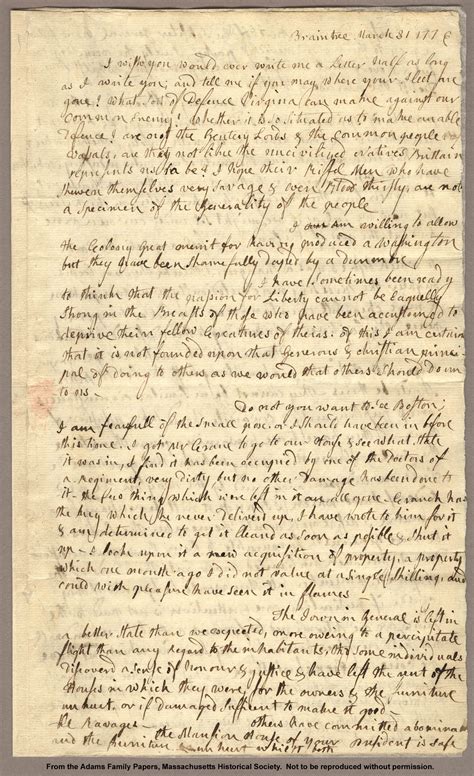 Braintree March 31 1776
I wish you would ever write me a Letter half as long
as I write you; and tell me if you may where your Fleet are
gone? What sort of Defence Virginia can make against our
common Enemy? Whether it is so situated as to make an able
Defence? are not the Gentery Lords & the common people
vassals, are they not like the uncivilized Natives Brittain
represents us to be? I hope their Riffel Men who have
shewen themselves very savage & even Blood thirsty; are not
a specimen of the Generality of the people
I am willing to allow
the Colony great merrit for having produced a Washington
but they have been shamefully duped by a Dunmore
I have sometimes been ready
to think that the passion for Liberty cannot be Eaquelly
Strong in the Breasts of those who have been accustomed to
deprive their fellow Creatures of theirs. of this I am certain
that it is not founded upon that generous & christian princi
pal of doing to others as we would that others should do un
to us
Do not you want to see Boston;
I am fearfull of the small pox, or I should have been in before
this time. I got Mr Crane to go to our House & see what state
it was in, I find it has been occupied by one of the Doctors of
a Regiment, very dirty, but no other Damage has been done to
it. the few things which were left in it are all gone. Cranch has
the key which he never deliverd up, I have wrote to him for it
& am determined to get it cleand as soon as possible & shut it
up. I look upon it a new acquisition of property, a property
which one month ago I did not value at a single shilling, and
could with pleasure have seen it in flames
The Town in General is left in
a better state than we expected, more oweing to a percipitate
flight than any regard to the inhabitants, tho some individuals
discoverd a sense of honour & justice & have left the rent of the
Houses in which they were, for the owners & the furniture
unhurt, or if damaged sufficent to make it good
others have committed abominable
Ravages
the Mansion House of your President is safe
and the furniture unhurt whilst both
From the Adams Family Papers, Massachusetts Historical Society. Not to be reproduced without permission.